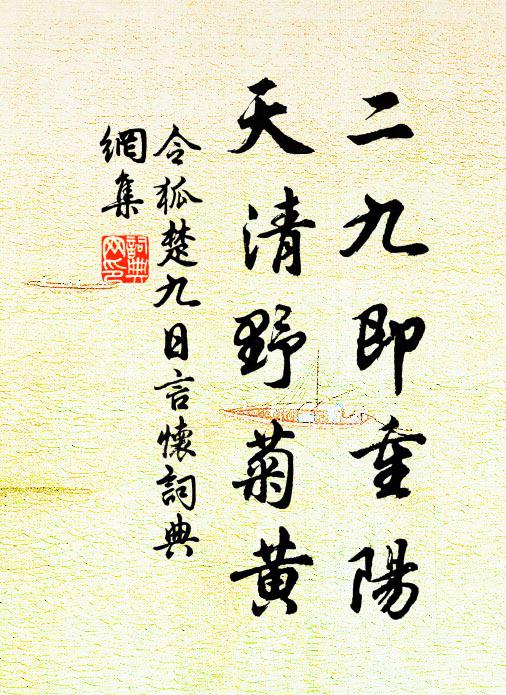 二九即重陽
天清野菊黄
令狐楚九日言懷詞典
網集
詞典
网印